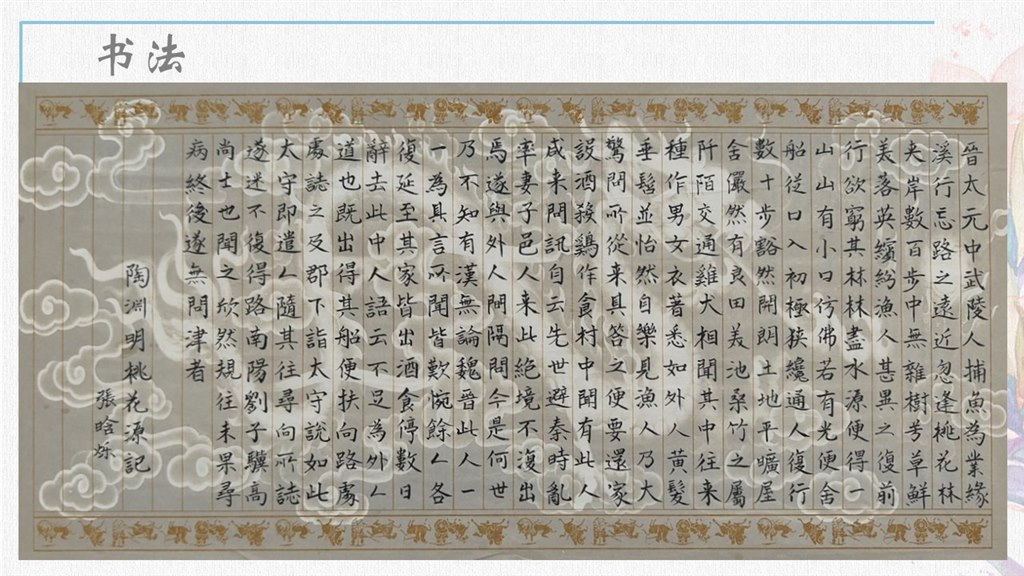 书法
晉太元中武陵人捕魚為業緣
溪行忘路之遠近忽逢桃花林
夹岸數百步中無雜樹芳草鮮
美落英繽紛漁人甚異之復前
行欲窮其林林盡水源便得一
山山有小口仿佛若有光便舍
船従口入初極狭纔通人復行
數十步豁然開朗土地平曠屋
舍儼然有良田美池桑竹之屬
阡陌交通雞犬相聞其中往来
種作男女衣著悉如外人黄髮
垂髫並怡然自樂見漁人乃大
驚問所従来具答之便要還家
設酒殺鷄作食村中聞有此人
咸来問訊自云先世避秦時亂
率妻子邑人来此絶境不復出
焉遂與外人間隔問今是何世
乃不知有漢無論魏晉此人一
一為具言所聞皆歎惋餘人各
復延至其家皆出酒食停數日
辭去此中人語云不足為外人
道也既出得其船便扶向路處
處誌之及郡下詣太守說如此
太守即遣人隨其往尋向所誌
遂迷不復得路南陽劉子驥高
尚士也聞之欣然規往未果尋
病終後遂無問津者
陶淵明桃花源記
張晗烁